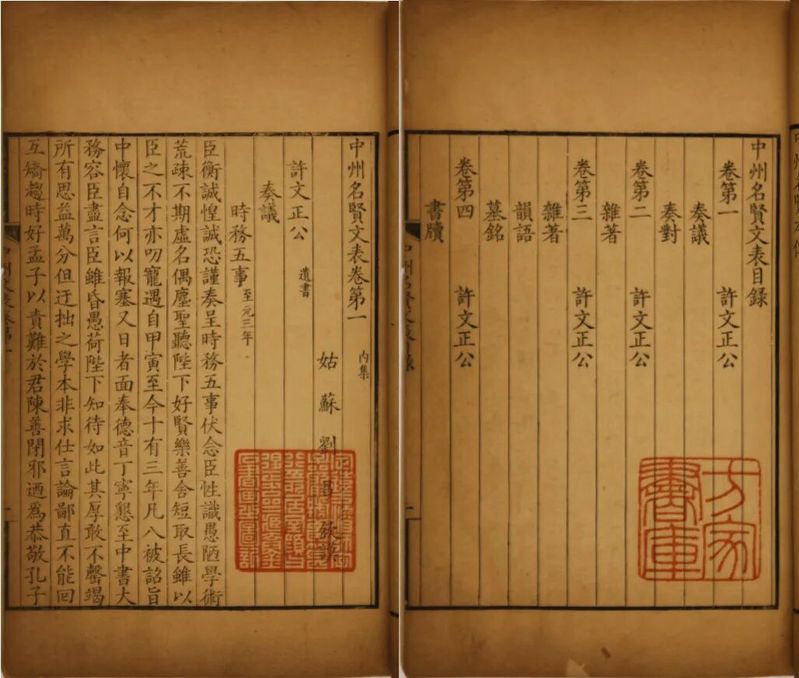 中州名賢文表目錄
卷第一 許文正公
奏議
奏對
卷第二 許文正公
雜著
卷第三 許文正公
雜著
韻語
墓銘
卷第四 許文正公
書牘
方家書庫
中州名賢文表卷第一 内集
姑蘇劉昌欽
許文正公 遺書
奏議
時務五事 至元三年
臣衡誠惶誠恐謹奏呈時務五事伏念臣性識愚陋學術
荒疎不期虛名偶塵聖聽陛下好賢樂善舍短取長雖以
臣之不才亦叨寵遇自甲寅至今十有三年凡八被詔旨
中懷自念何以報塞又日者面奉德音丁寧懇至中書大
務容臣盡言臣雖昏愚荷陛下知待如此其厚敢不罄竭
所有思益萬分但迂拙之學本非求仕言論鄙直不能回
互矯趨時好孟子以責難於君陳善閉邪迺爲恭敬孔子